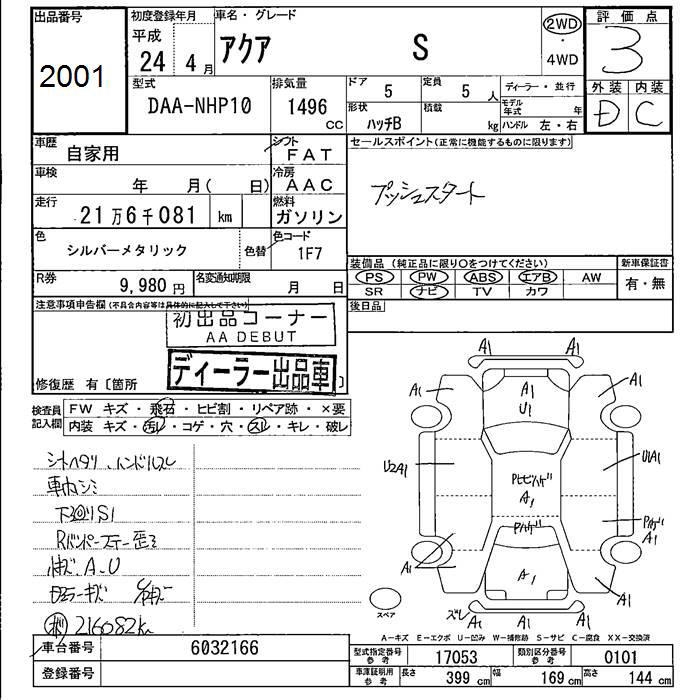 出品番号 初度登録年月 車名・グレード 評価点
2001 平成 24年 4月 アクア S 2WD・4WD 3
型式 排気量 ドア 定員 ディーラー・並行 外装 内装
DAA-NHP10 1496 CC 5 5人 モデル年式 年 D C
形状 ハッチB 積載 kg ハンドル 左・右
車歴 自家用 シフト FAT セールスポイント(正常に機能するものに限ります)
車検 年 月( 日) 冷房 AAC プッシュスタート
走行 21万6千081 km 燃料 ガソリン
色 シルバーメタリック 色替 色コード 1F7
装備品(純正品に限り○をつけてください) 新車保証書
R券 9,980円 名変通知期限 月 日 PS PW ABS エアB AW 有・無
SR ナビ TV カワ
注意事項申告欄(不具合内容等は具体的に記入して下さい) 後日品
初出品コーナー
AA DEBUT
ディーラー出品車
修復歴 有〔箇所 〕
検査員記入欄 FW キズ・飛石・ヒビ割・リペア跡・×要
内装 キズ・汚レ・コゲ・穴・スレ・キレ・破レ
シートヘタリ、ハンドルスレ
車内シミ
下廻りS1
Rバンパーステー歪ミ
小キズ、A、U
216082K
A1 A1
A1 A1 U1 A1
U2A1 U1A1
A1
A1 A1
A1 A1 A1
スペア ズレ A1
A-キズ E-エクボ U-凹み W-補修跡 S-サビ C-腐食 XX-交換済
車台番号 6032166 型式指定番号 参考 17053 類別区分番号 参考 0101
登録番号 車庫証明用 参考 長さ 399cm 幅 169cm 高さ 144cm